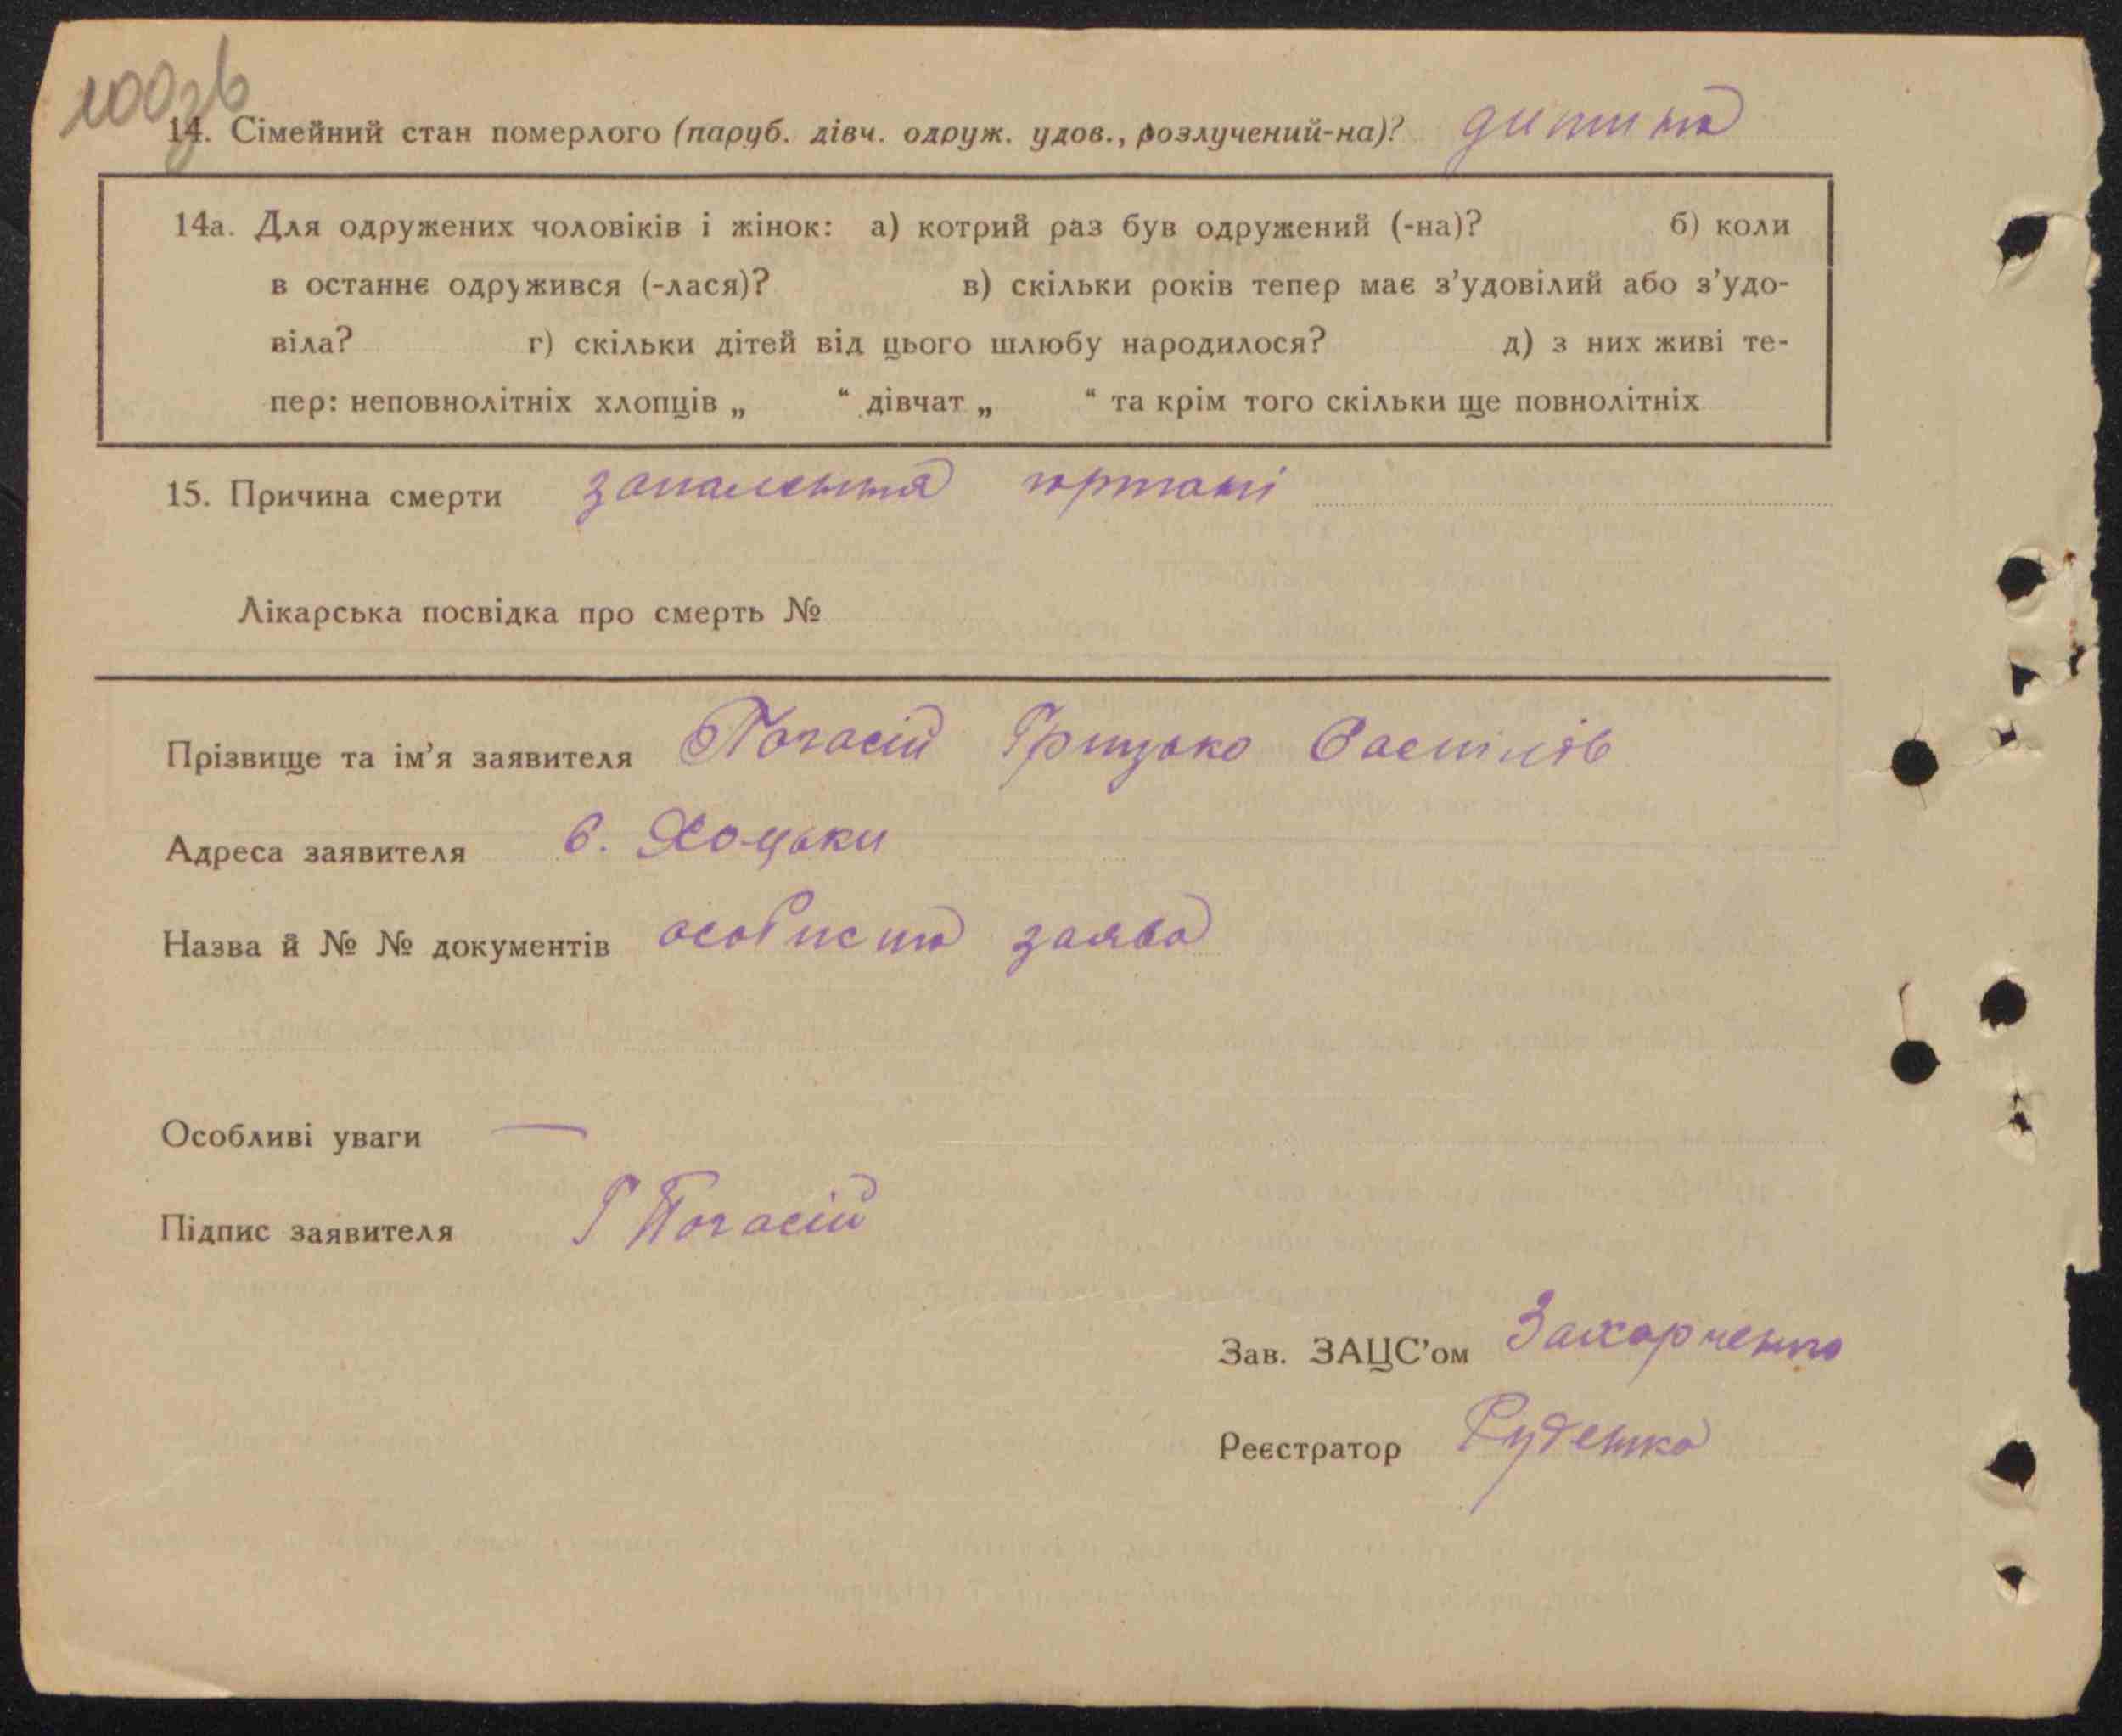 100зв
14. Сімейний стан померлого (паруб. дівч. одруж. удов., розлучений-на)? дитина
14а. Для одружених чоловіків і жінок: а) котрий раз був одружений (-на)? б) коли
в останнє одружився (-лася)? в) скільки років тепер має з’удовілий або з’удо-
віла? г) скільки дітей від цього шлюбу народилося? д) з них живі те-
пер: неповнолітніх хлопців „ “ дівчат „ “ та крім того скільки ще повнолітніх
15. Причина смерти запалення гортані
Лікарська посвідка про смерть №
Прізвище та ім’я заявителя Погасій Грицько Васильів
Адреса заявителя с. Хоцьки
Назва й № № документів особиста заява
Особливі уваги —
Підпис заявителя Г Погасій
Зав. ЗАЦС’ом Захарченко
Реєстратор Руденко